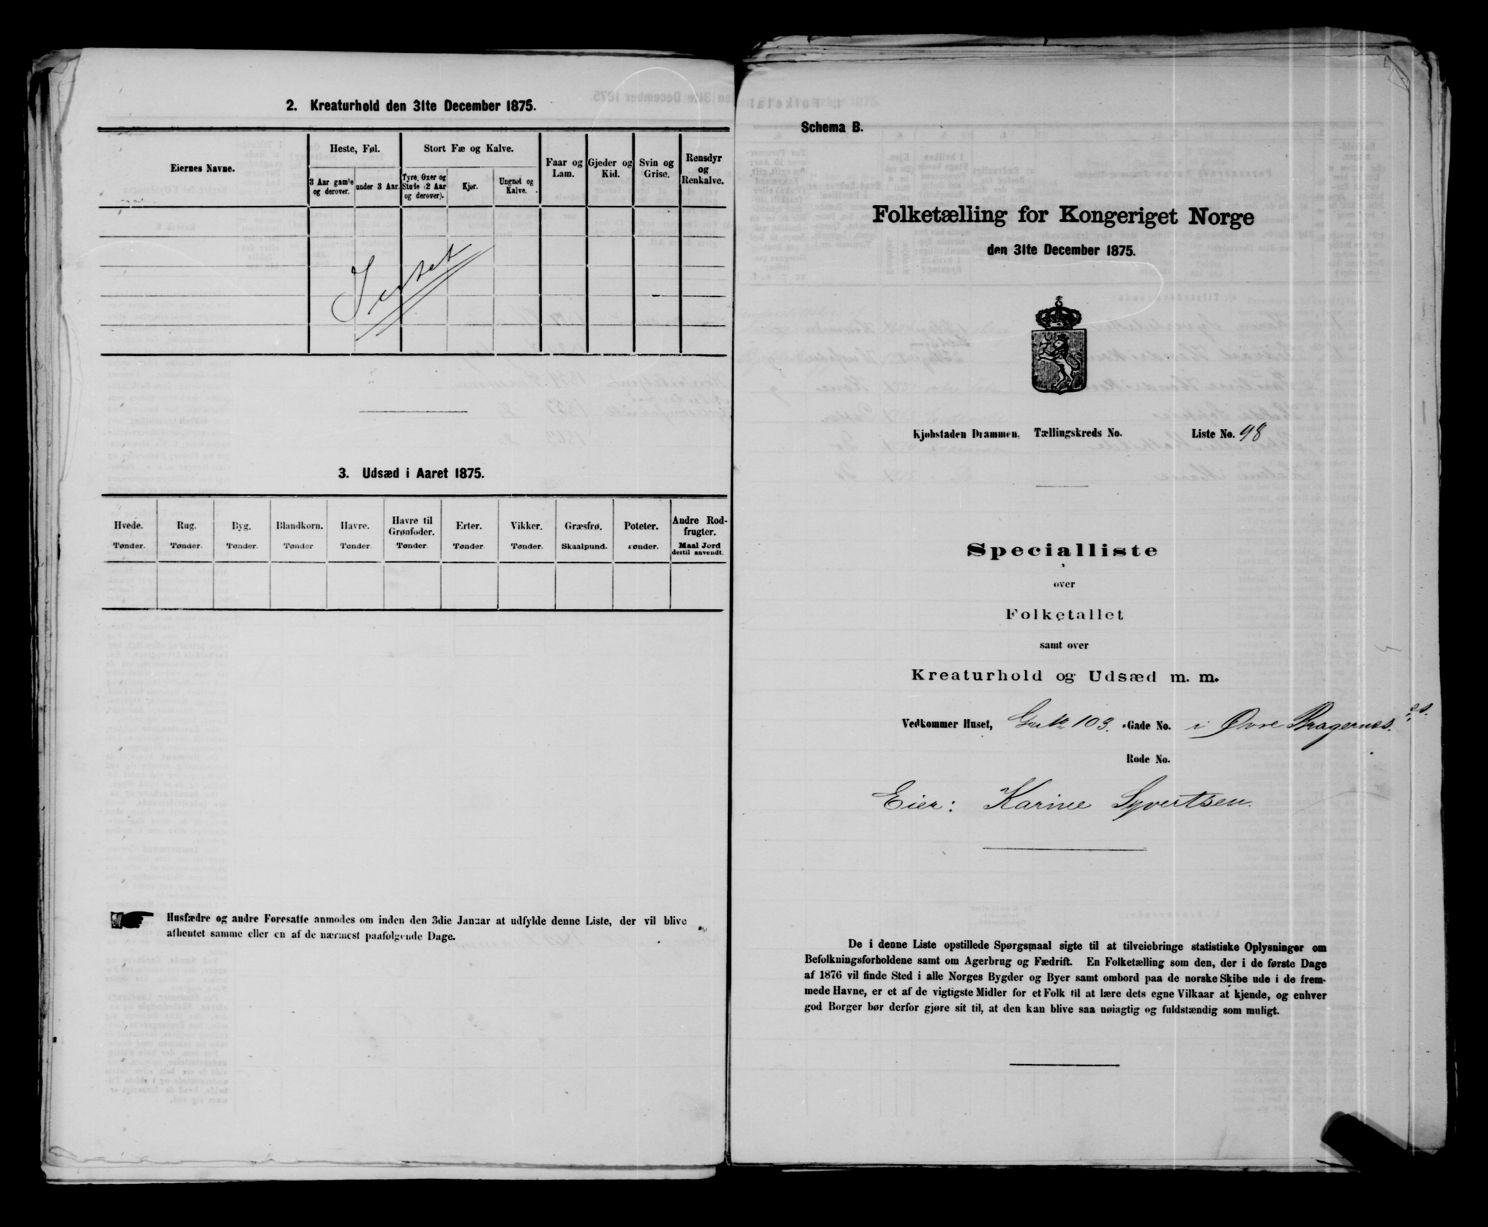 2. Kreaturhold den 31te December 1875.
Eiernes Navne.
Heste, Føl.
Stort Fæ og Kalve.
Faar og
Lam.
Gjeder og
Kid.
Svin og
Grise.
Rensdyr
og
Renkalve.
3 Aar gamle
og derover.
under 3 Aar.
Tyre, Oxer og
Stute (2 Aar
og derover).
Kjør.
Ungnød og
Kalve.
3. Udsæd i Aaret 1875.
Hvede.
Tønder.
Rug.
Tønder.
Byg.
Tønder.
Blandkorn.
Tønder
Havre.
Tønder
Havre til
Grønfoder.
Tønder
Erter.
Tønder
Vikker.
Tønder.
Græsfrø.
Skaalpund.
Poteter.
Tønder.
Andre Rod-
frugter.
Maal Jord
dertil anvendt.
Husfædre og andre Foresatte anmodes om inden den 3die Januar at udfylde denne Liste, der vil blive
afhentet samme eller en af de nærmest paafølgende Dage.
Schema B.
Folketælling for Kongeriget Norge
den 31te December 1875.
Kjøbstaden Drammen. Tællingskreds No. Liste No. 98
Specialliste
over
Folketallet
samt over
Kreaturhold og Udsæd m. m.
Vedkommer Huset, 103. Gade No. i Øvre Bragernes.
Rode No.
Eier: Karine Syvertsen.
De i denne Liste opstillede Spørgsmaal sigte til at tilveiebringe statistiske Oplysninger om
Befolkningsforholdene samt om Agerbrug og Fædrift. En Folketælling som den, der i de første Dage
af 1876 vil finde Sted i alle Norges Bygder og Byer samt ombord paa de norske Skibe ude i de frem-
mede Havne, er et af de vigtigste Midler for et Folk til at lære dets egne Vilkaar at kjende, og enhver
god Borger bør derfor gjøre sit til, at den kan blive saa nøiagtig og fuldstændig som muligt.